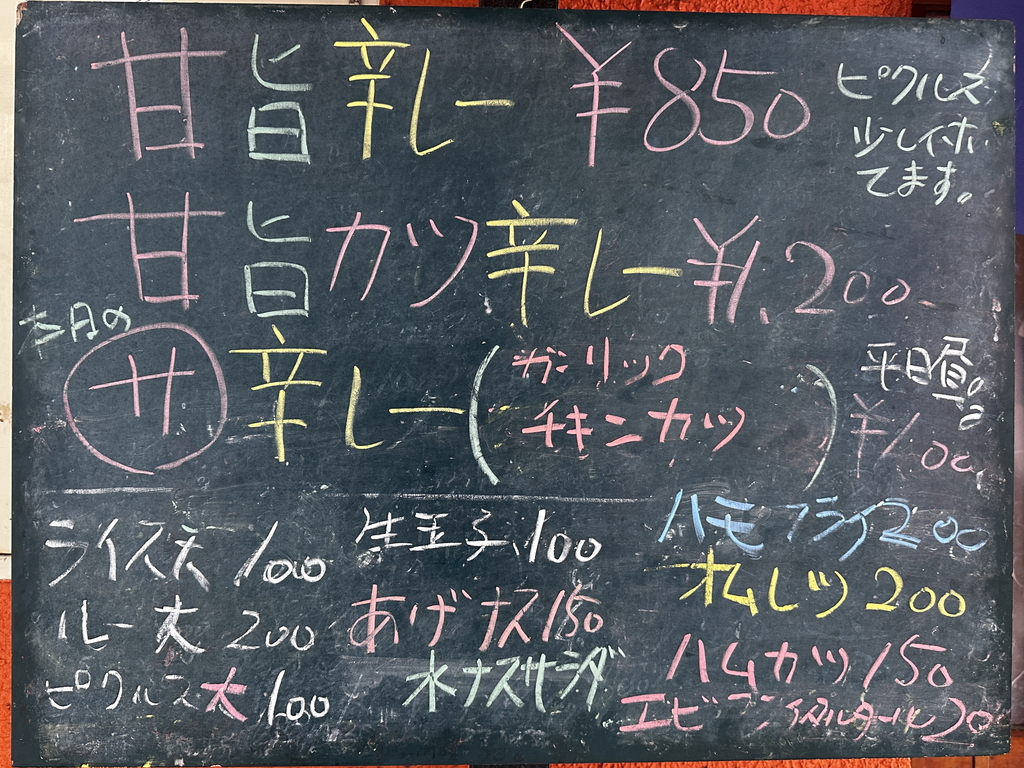 甘旨辛レー ¥850
ピクルス
少し付ホ
てます。
甘旨カツ辛レー ¥1,200
本日の
サ 辛レー (ガーリック
チキンカツ)
平日昼。
¥1,00
ライス大 100
ルー大 200
ピクルス大 100
生玉子 100
あげナス 150
水ナスサラダ
ハモフライ 200
オムレツ 200
ハムカツ 150
エビフライ タルタール 20